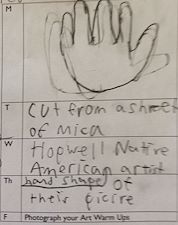 M
T
cut from a sheet
of mica
W
Hopwell Native
American artist
Th
hand shape of
their picire
F
Photograph your Art Warm Ups